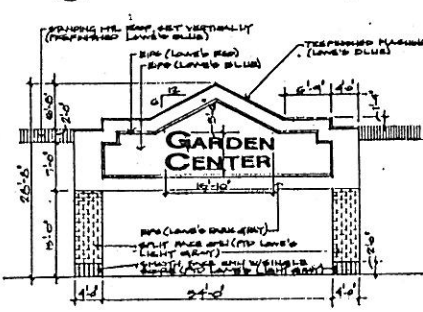 STANDING MTL ROOF, SET VERTICALLY
(PREFINISHED LOWE'S BLUE)
EIFS (LOWE'S RED)
EIFS (LOWE'S BLUE)
PREFINISHED
(LOWE'S BLUE)
6
12
6'-9"
4'-0"
2'-0"
GARDEN
CENTER
19'-10"
28'-8"
EIFS (LOWE'S DARK GRAY)
SPLIT FACE CMU (PTD LOWE'S
LIGHT GRAY)
SMOOTH FACE CMU W/SINGLE
(PTD LOWE'S LIGHT GRAY)
2'-0"
4'-0"
24'-0"
4'-0"